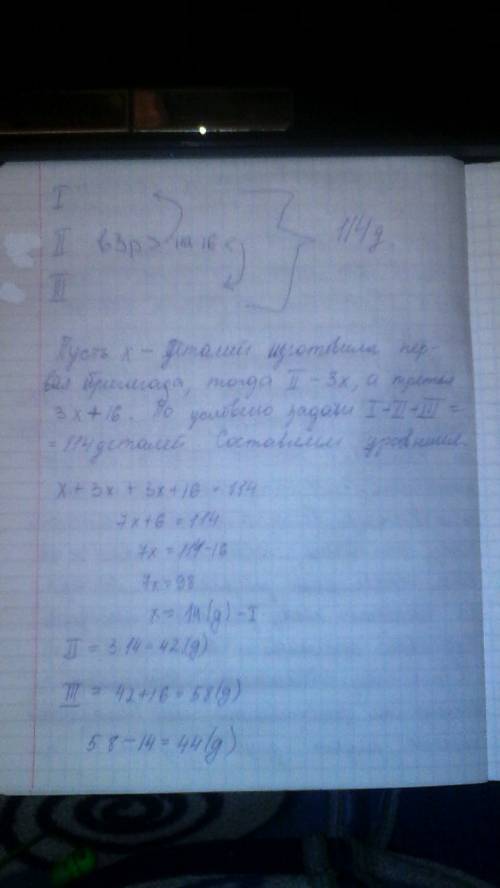 I
II в 3р > на 16 <
III
114д.
Пусть x – деталей изготовила пер-
вая бригада, тогда II – 3x, а третья
3x+16. По условию задачи I+II+III =
= 114 деталей. Составляем уравнение.
x + 3x + 3x+16 = 114
7x+6 = 114
7x = 114-16
7x = 98
x = 14(д) – I
II = 3·14 = 42(д)
III = 42+16 = 58(д)
58 – 14 = 44(д)